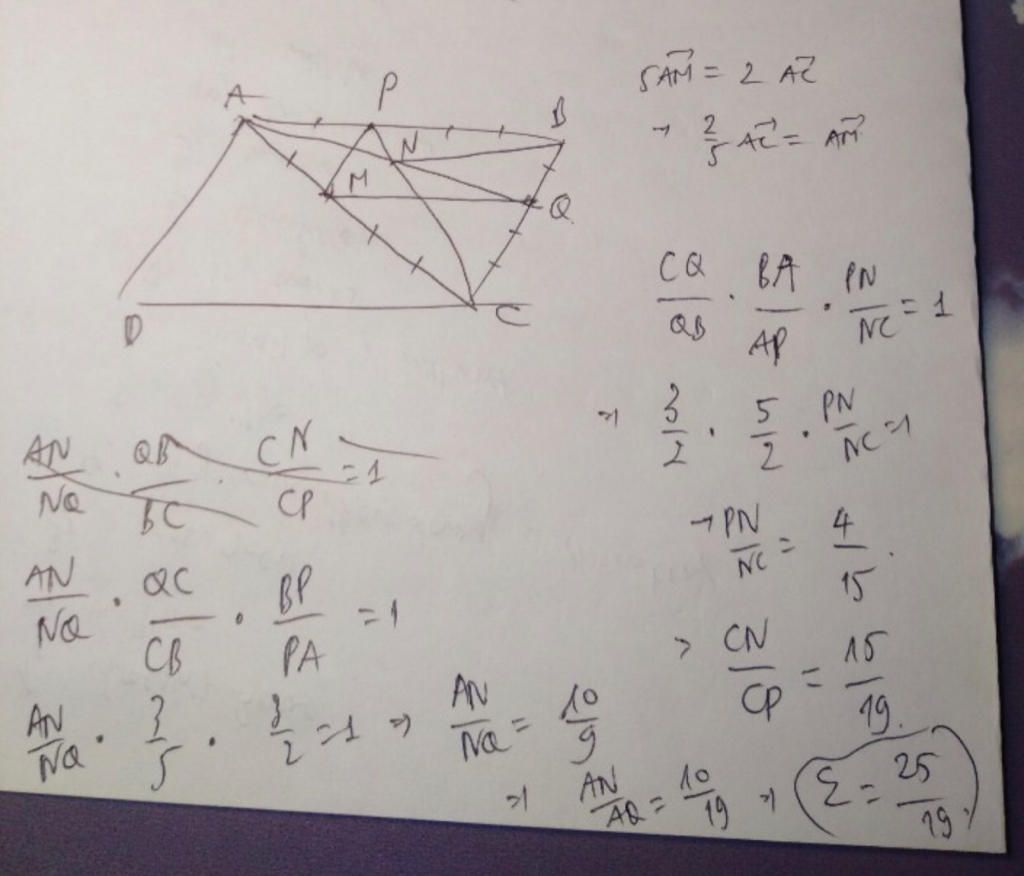 A P B
N
M
Q
D C
5AM⃗ = 2 AC⃗
→ 2/5 AC⃗ = AM⃗
CQ/QB . BA/AP . PN/NC = 1
⇒ 3/2 . 5/2 . PN/NC = 1
→ PN/NC = 4/15 .
> CN/CP = 15/19.
AN/NQ . QB/BC . CN/CP = 1
AN/NQ . QC/CB . BP/PA = 1
AN/NQ . 3/5 . 3/2 = 1 ⇒ AN/NQ = 10/9
⇒ AN/AQ = 10/19 ⇒ Σ = 25/19.